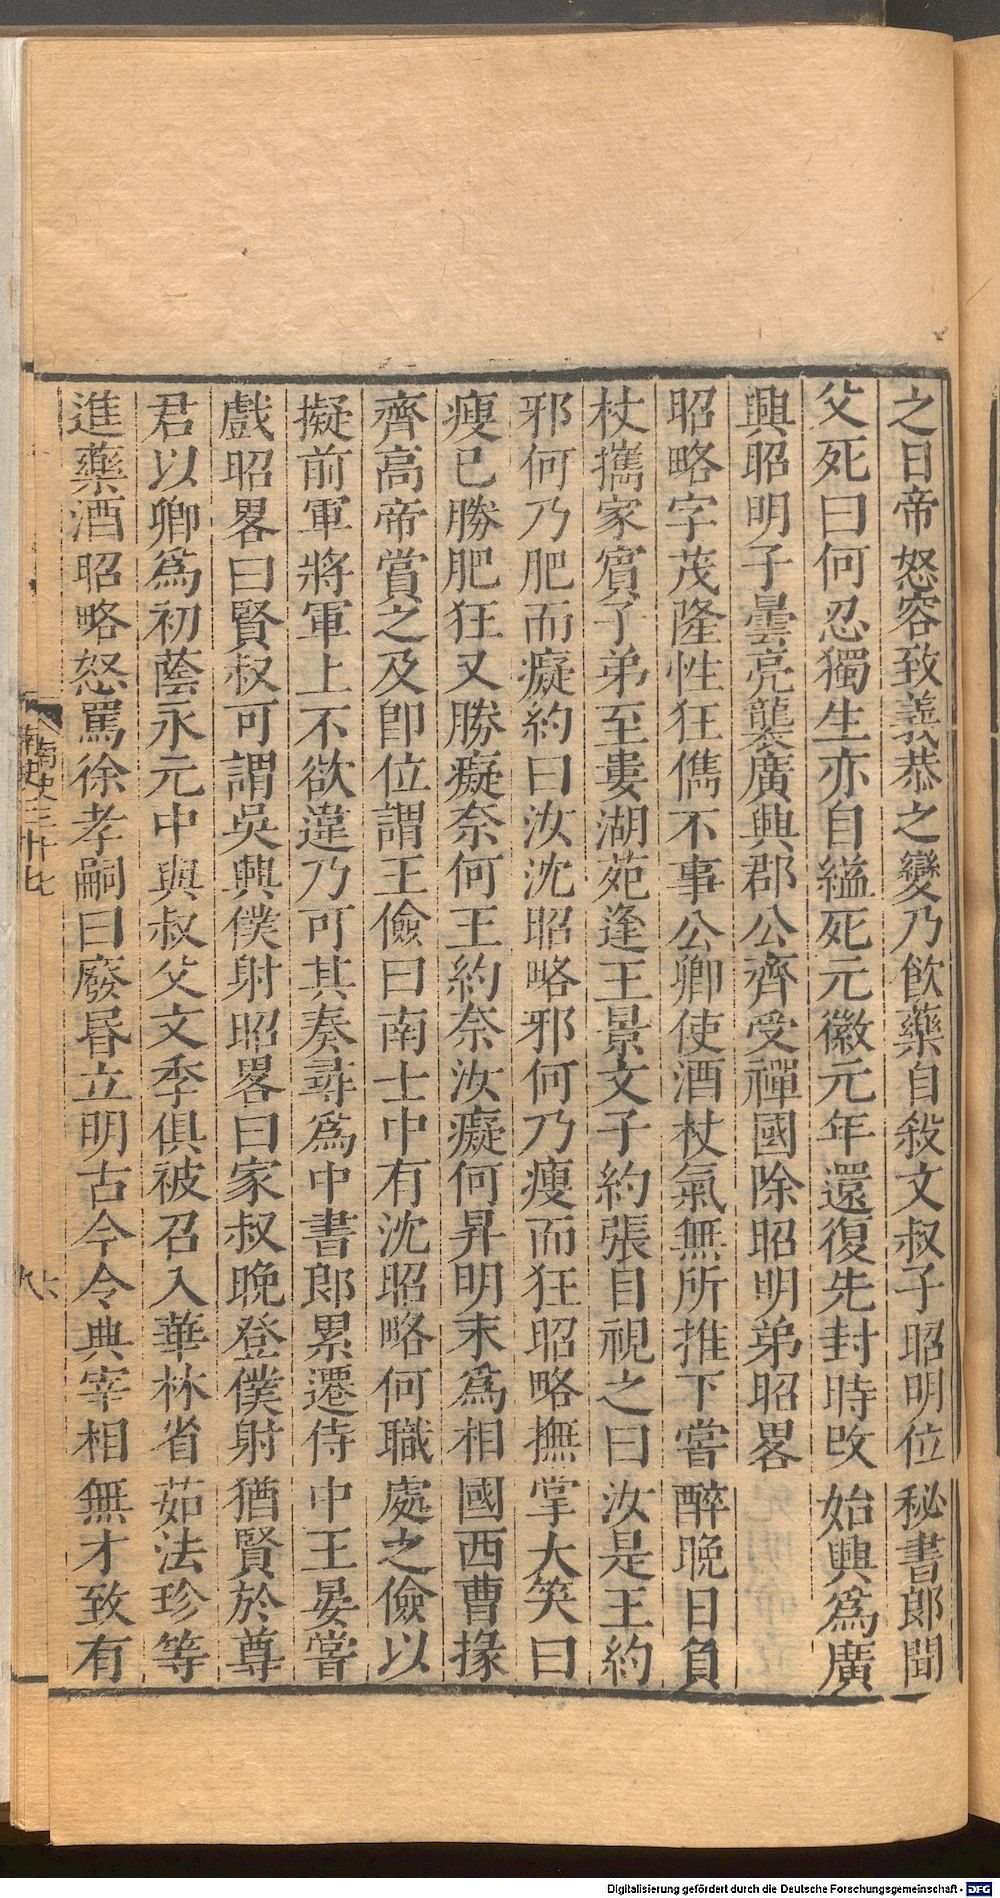 之日帝怒容致義恭之變乃飮藥自殺文叔子昭明位秘書郎聞
父死曰何忍獨生亦自縊死元徽元年還復先封時改始興爲廣
興昭明子曇亮襲廣興郡公齊受禪國除昭明弟昭畧
昭略字茂隆性狂儁不事公卿使酒杖氣無所推下嘗醉晚日負
杖攜家賓子弟至婁湖苑逢王景文子約張目視之曰汝是王約
邪何乃肥而癡約曰汝沈昭略邪何乃瘦而狂昭略撫掌大笑曰
瘦已勝肥狂又勝癡奈何王約奈汝癡何昇明末爲相國西曹掾
齊高帝賞之及卽位謂王儉曰南士中有沈昭略何職處之儉以
擬前軍將軍上不欲違乃可其奏尋爲中書郎累遷侍中王晏嘗
戲昭畧曰賢叔可謂吳興僕射昭畧曰家叔晚登僕射猶賢於尊
君以卿爲初蔭永元中與叔父文季俱被召入華林省茹法珍等
進藥酒昭略怒罵徐孝嗣曰廢昏立明古今令典宰相無才致有
南史三十七
Digitalisierung gefördert durch die Deutsche Forschungsgemeinschaft - DFG